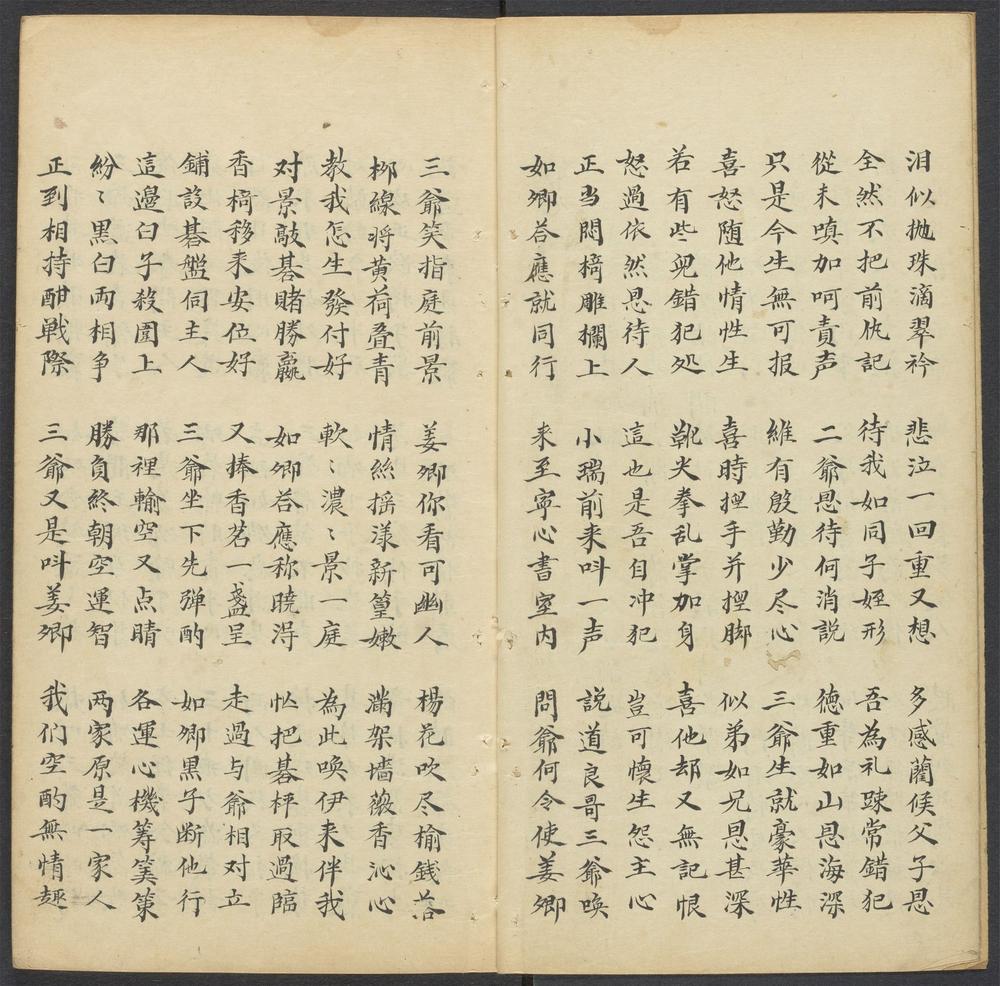 泪似抛珠滴翠衿 悲泣一回重又想 多感藺侯父子恩
全然不把前仇記 待我如同子姪形 吾為礼踈常錯犯
從未嗔加呵責声 二爺恩待何消説 德重如山恩海深
只是今生無可报 維有殷勤少尽心 三爺生就豪華性
喜怒随他情性生 喜時揑手并揑脚 似弟如兄恩甚深
若有些兒錯犯処 靴尖拳乱掌加身 喜他却又無記恨
怒過依然恩待人 這也是吾自冲犯 豈可懷生怨主心
正当悶椅雕欄上 小瑞前来呌一声 説道良哥三爺唤
如卿荅應就同行 来至寧心書室内 問爺何令使姜卿
三爺笑指庭前景 姜卿你看可幽人 楊花吹尽榆錢落
栁線将黄荷叠青 情絲摇漾新篁嫩 滿架墙薇香沁心
教我怎生發付好 軟〻濃〻景一庭 為此唤伊来伴我
对景敲碁賭勝贏 如卿荅應称暁淂 忙把碁枰取過臨
香椅移来安位好 又捧香茗一盏呈 走過与爺相对立
鋪設碁盤伺主人 三爺坐下先弹酌 如卿黒子断他行
這邉白子殺圍上 那裡輸空又点睛 各運心機筭策
紛〻黒白両相争 勝負終朝空運智 两家原是一家人
正到相持酣戦際 三爺又是呌姜卿 我们空酌無情趣